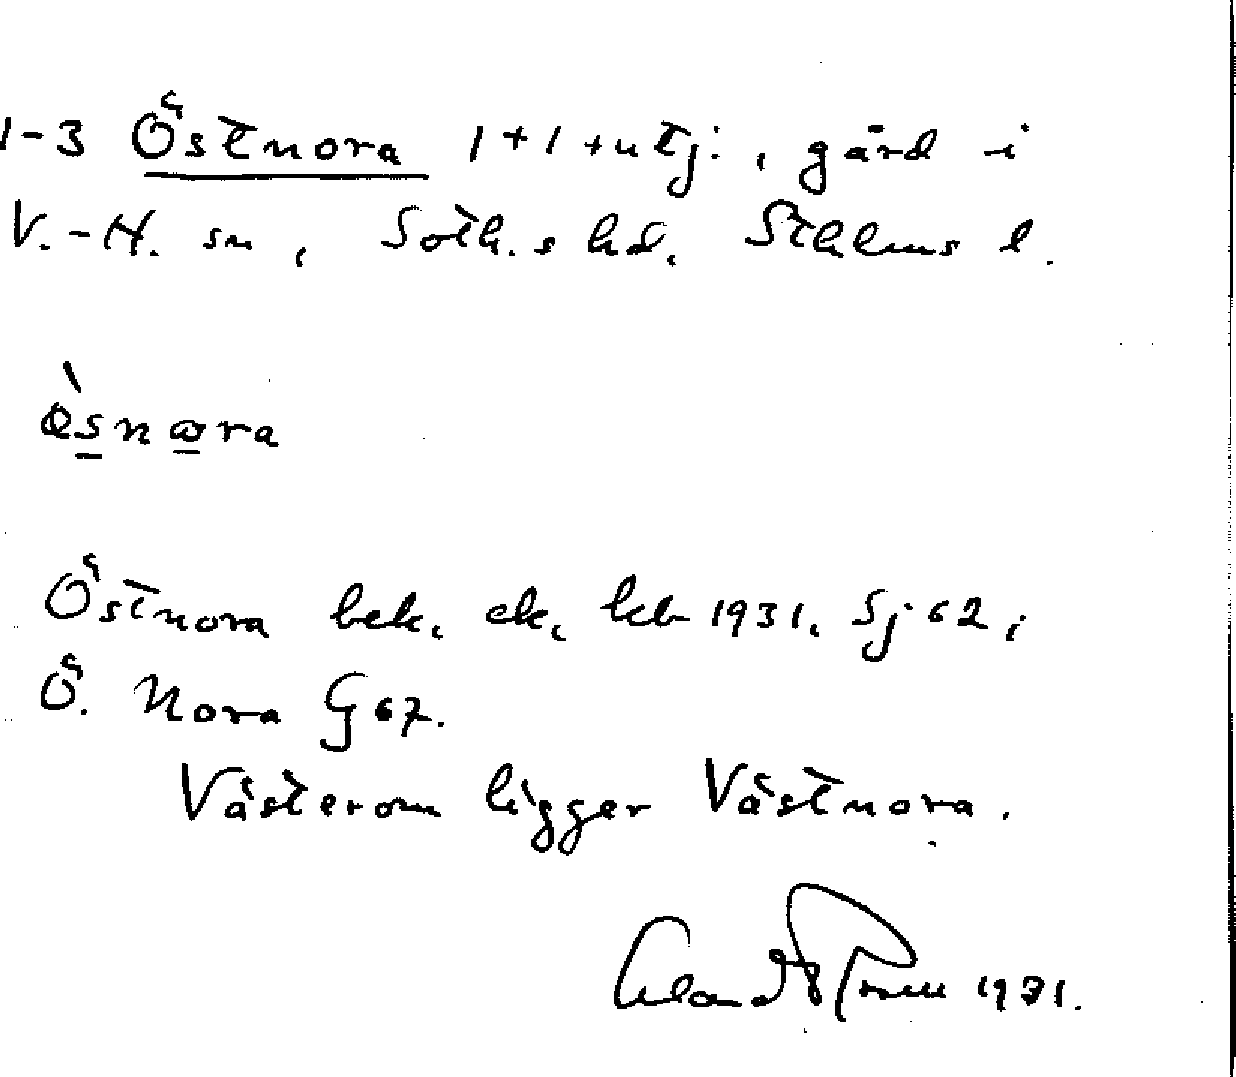 1-3 Östnora 1+1+utj:, gård i
V.-H. sn, Soth.s hd, Sthlms l.
ösnωra
Östnora bek. ek. kb 1931. Sj 62;
Ö. Nora G 67.
Västerom ligger Västnora.
1931.